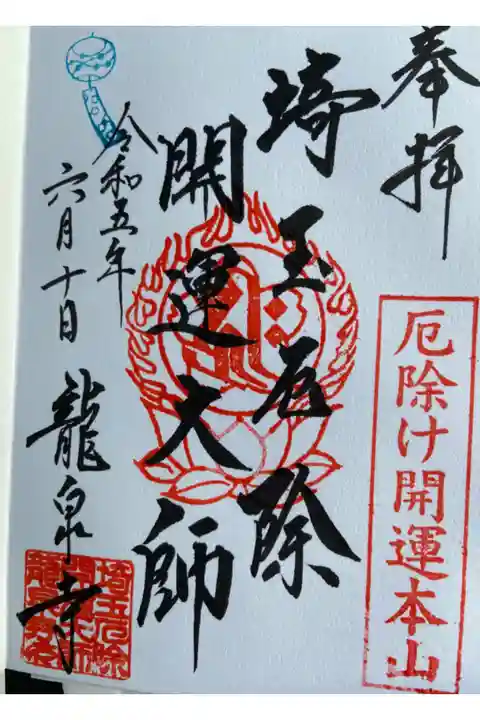 奉拝
厄除け開運本山
埼玉厄除
開運大師
令和五年
六月十日
龍泉寺
埼玉厄除
開運大師
龍泉寺